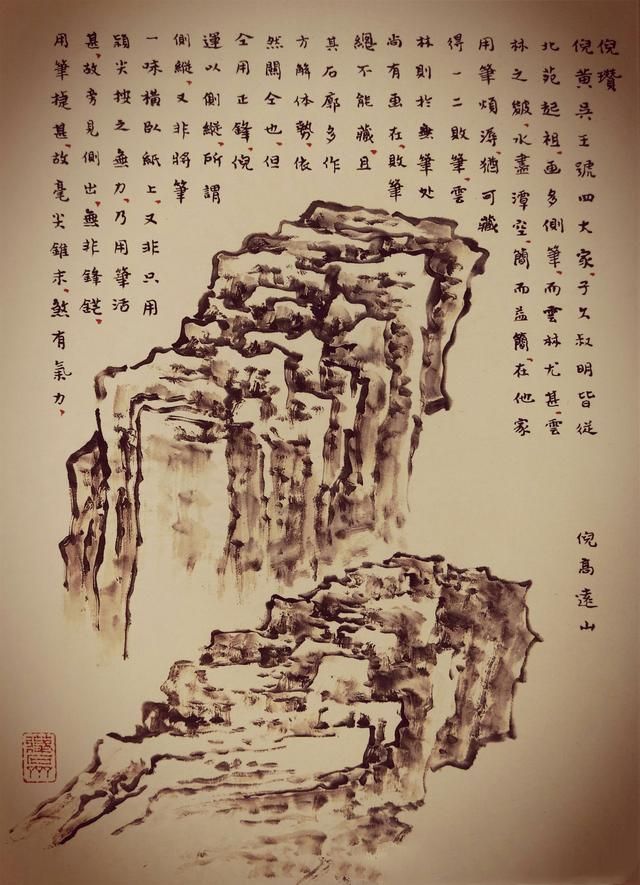 倪瓚
倪黃吳王號四大家、子久叔明皆從
北苑起祖、画多側筆、而雲林尤甚、雲
林之皴、水盡潭空、簡而益簡、在他家
用筆煩潺、猶可藏
得一二敗筆、雲
林則於無筆處
尚有画在、敗筆
總不能藏、且
其石廓多作
方解体勢、依
然關全也、但
全用正鋒、倪
運以側縱、所謂
側縱、又非將筆
一味橫臥紙上、又非只用
穎尖按之無力、乃用筆活
甚、故旁見側出、無非鋒鋩、
用筆捷甚、故毫尖錐末、煞有氣力、
倪高遠山